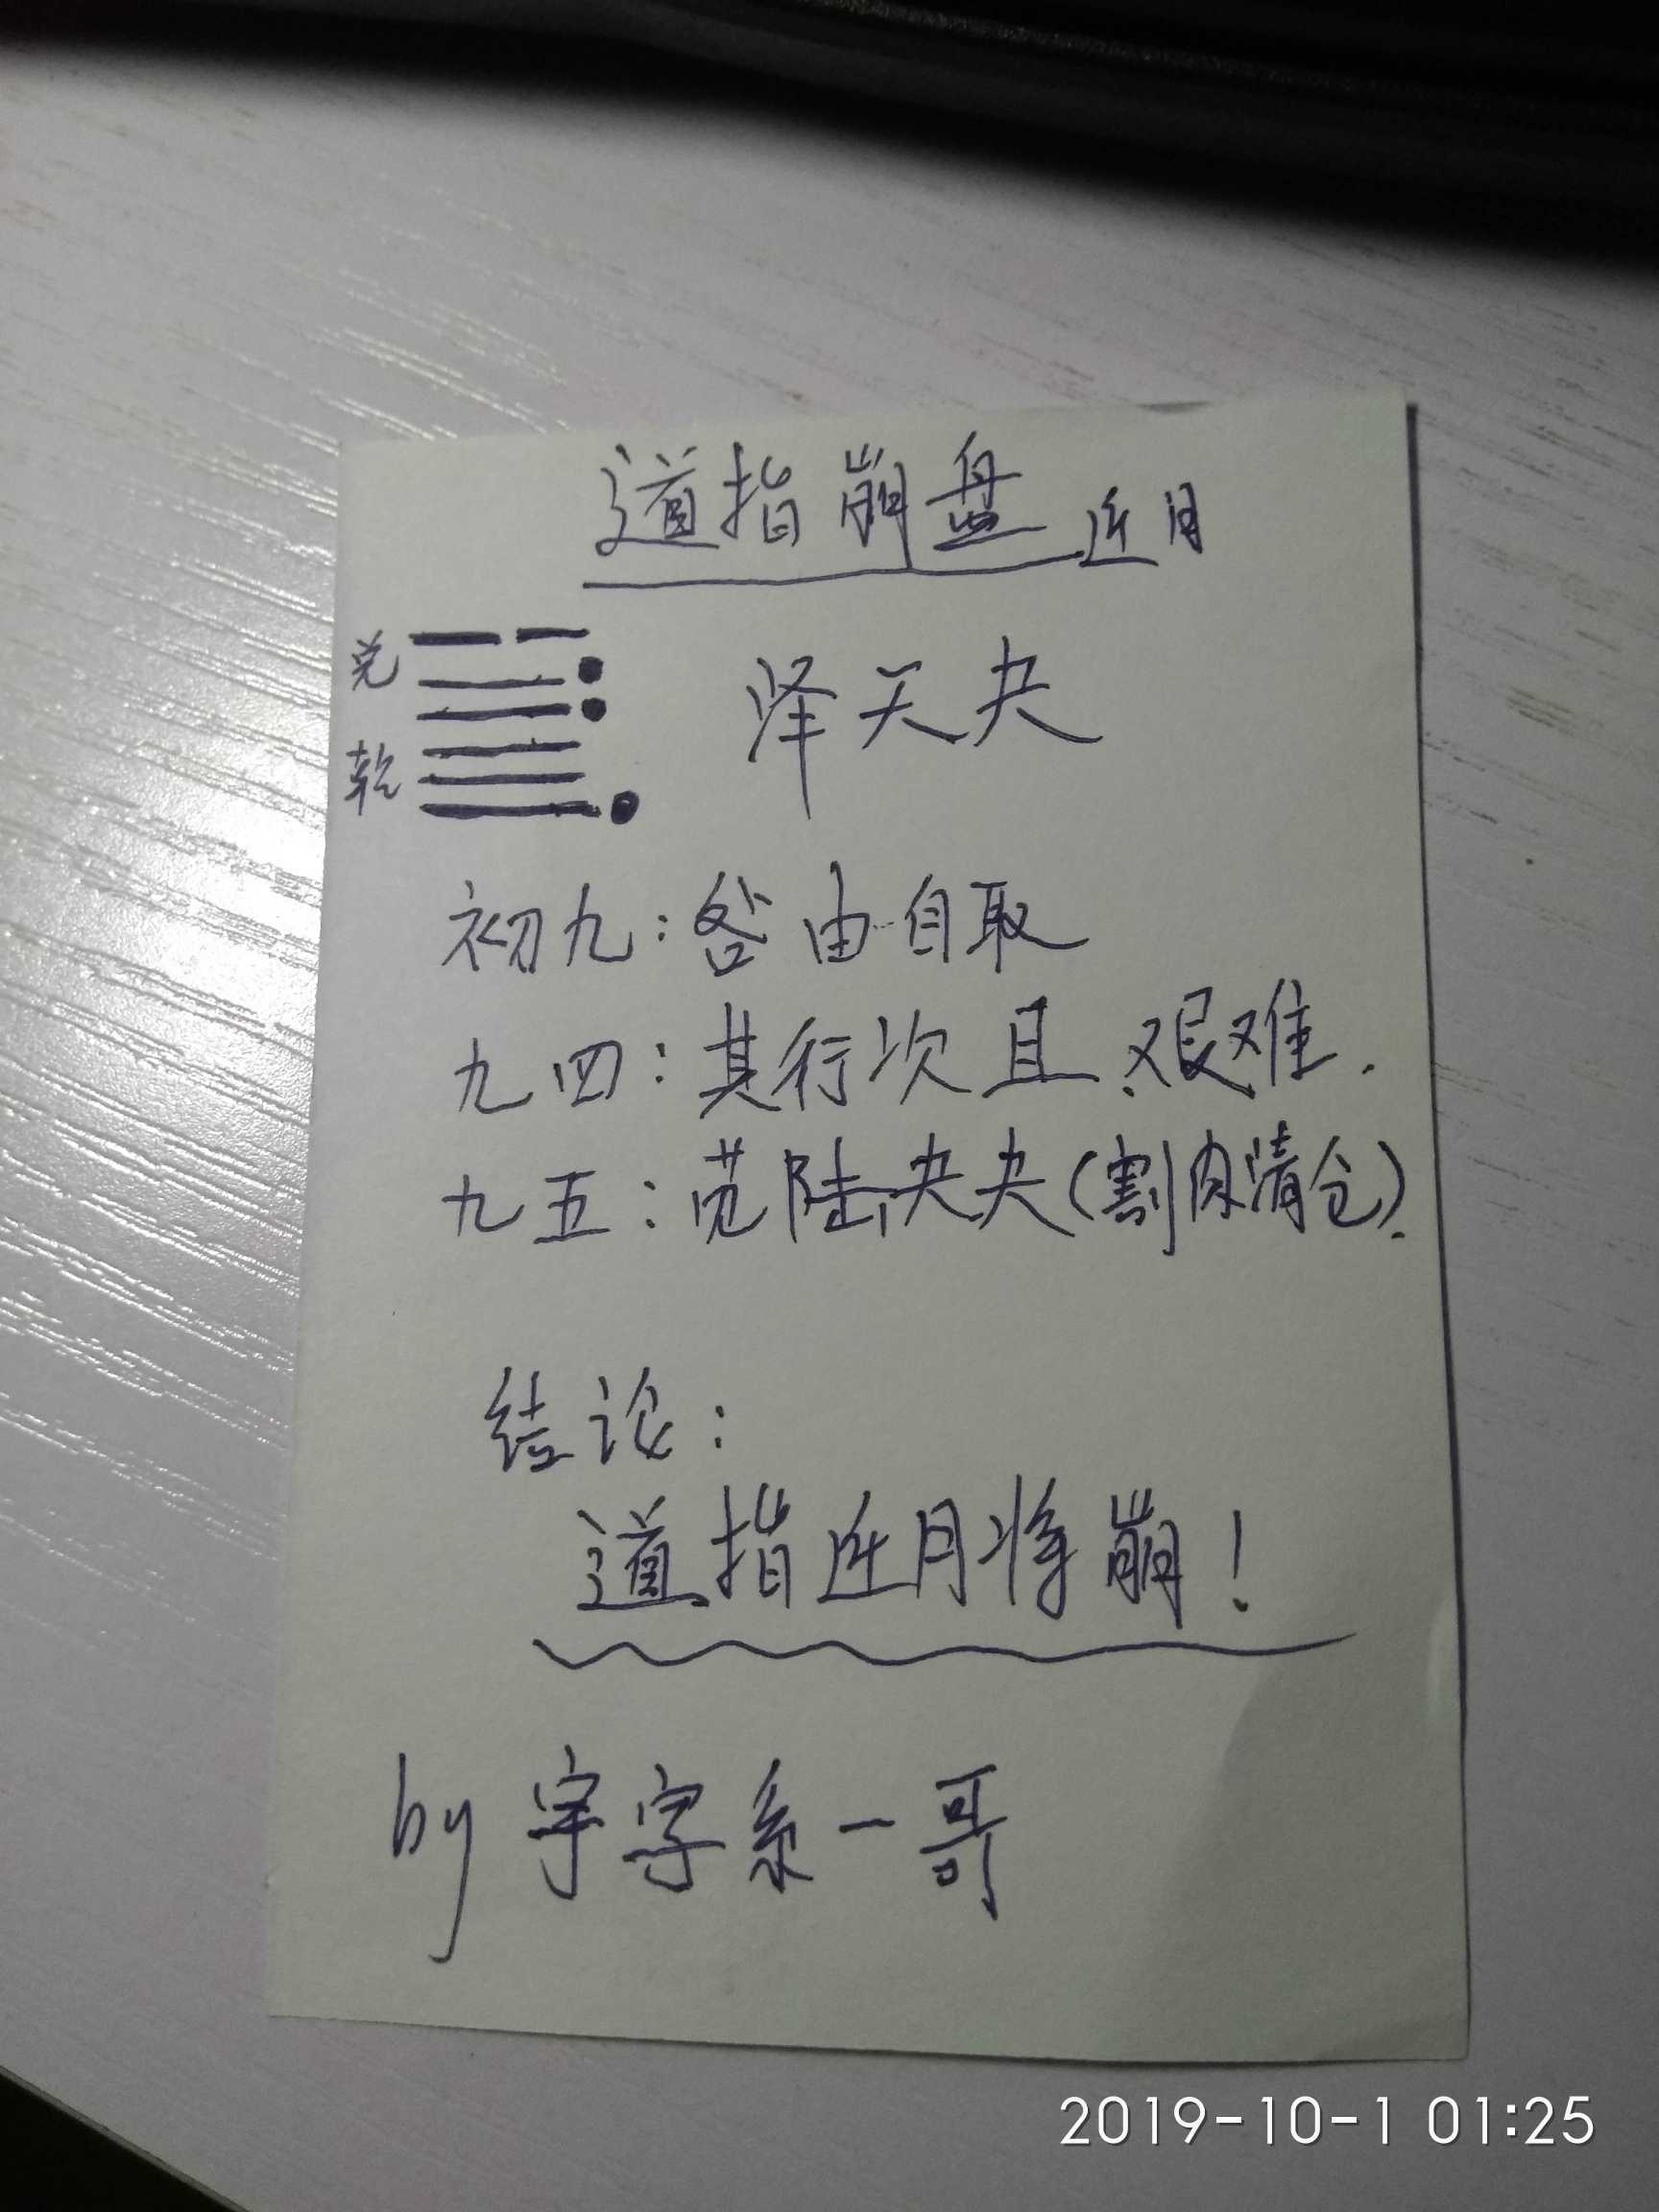 道指崩盘近月
兑
泽天夬
乾
初九：咎由自取
九四：其行次且、艰难.
九五：苋陆夬夬(割肉清仓).
结论：
道指近月将崩！
by 宇字系一哥
2019-10-1 01:25